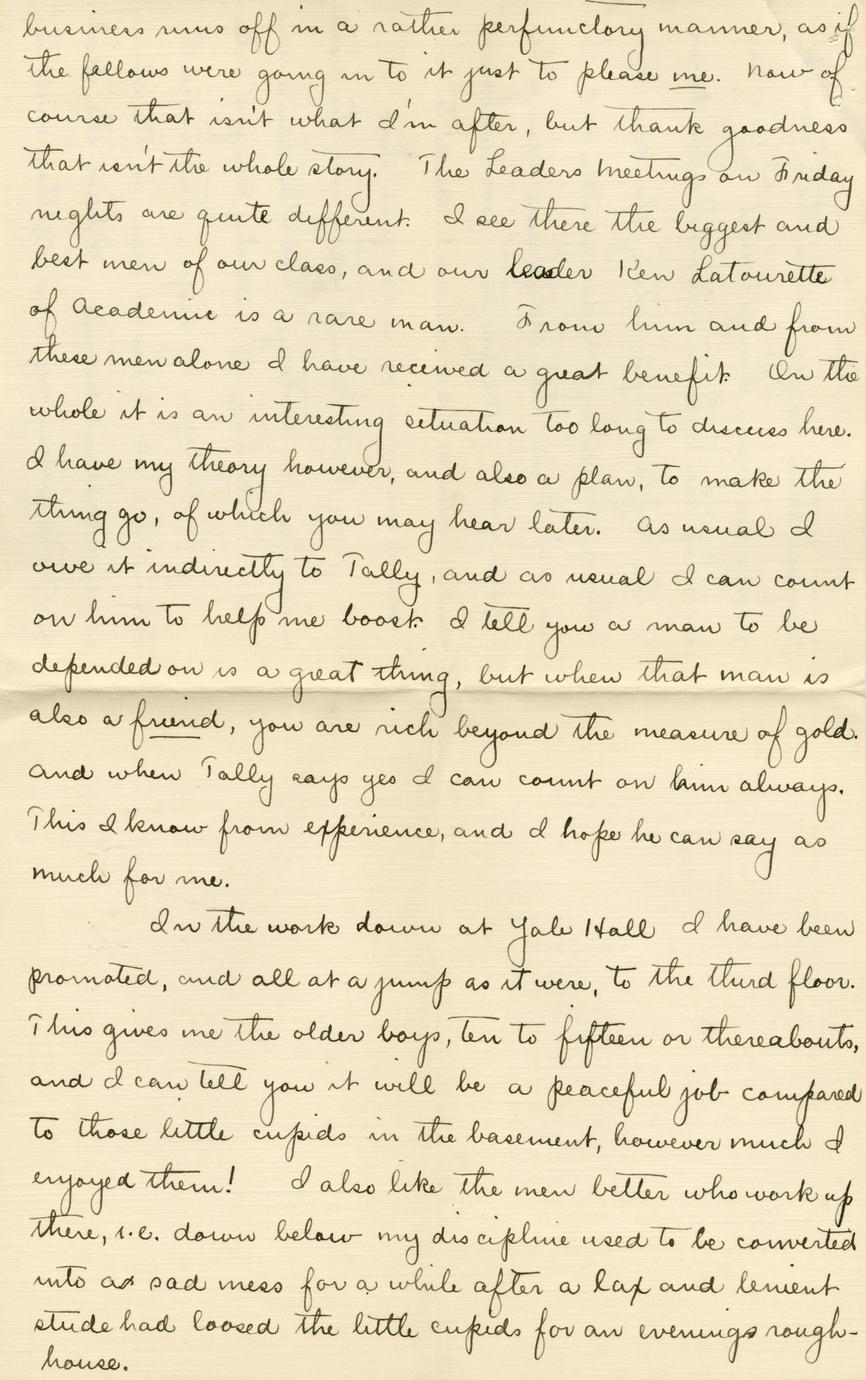 business runs off in a rather perfunctory manner, as if
the fellows were going in to it just to please me. Now of
course that isn't what I'm after, but thank goodness
that isn't the whole story. The Leaders Meetings on Friday
nights are quite different. I see there the biggest and
best men of our class, and our leader Ken Latourette
of Academic is a rare man. From him and from
these men alone I have received a great benefit. On the
whole it is an interesting situation too long to discuss here.
I have my theory however, and also a plan, to make the
thing go, of which you may hear later. As usual I
owe it indirectly to Tally, and as usual I can count
on him to help me boost. I tell you a man to be
depended on is a great thing, but when that man is
also a friend, you are rich beyond the measure of gold.
And when Tally says yes I can count on him always.
This I know from experience, and I hope he can say as
much for me.
In the work down at Yale Hall I have been
promoted, and all at a jump as it were, to the third floor.
This gives me the older boys, ten to fifteen or thereabouts,
and I can tell you it will be a peaceful job compared
to those little cupids in the basement, however much I
enjoyed them! I also like the men better who work up
there, i.e. down below my discipline used to be converted
into a sad mess for a while after a lax and lenient
stude had loosed the little cupids for an evenings rough-
house.